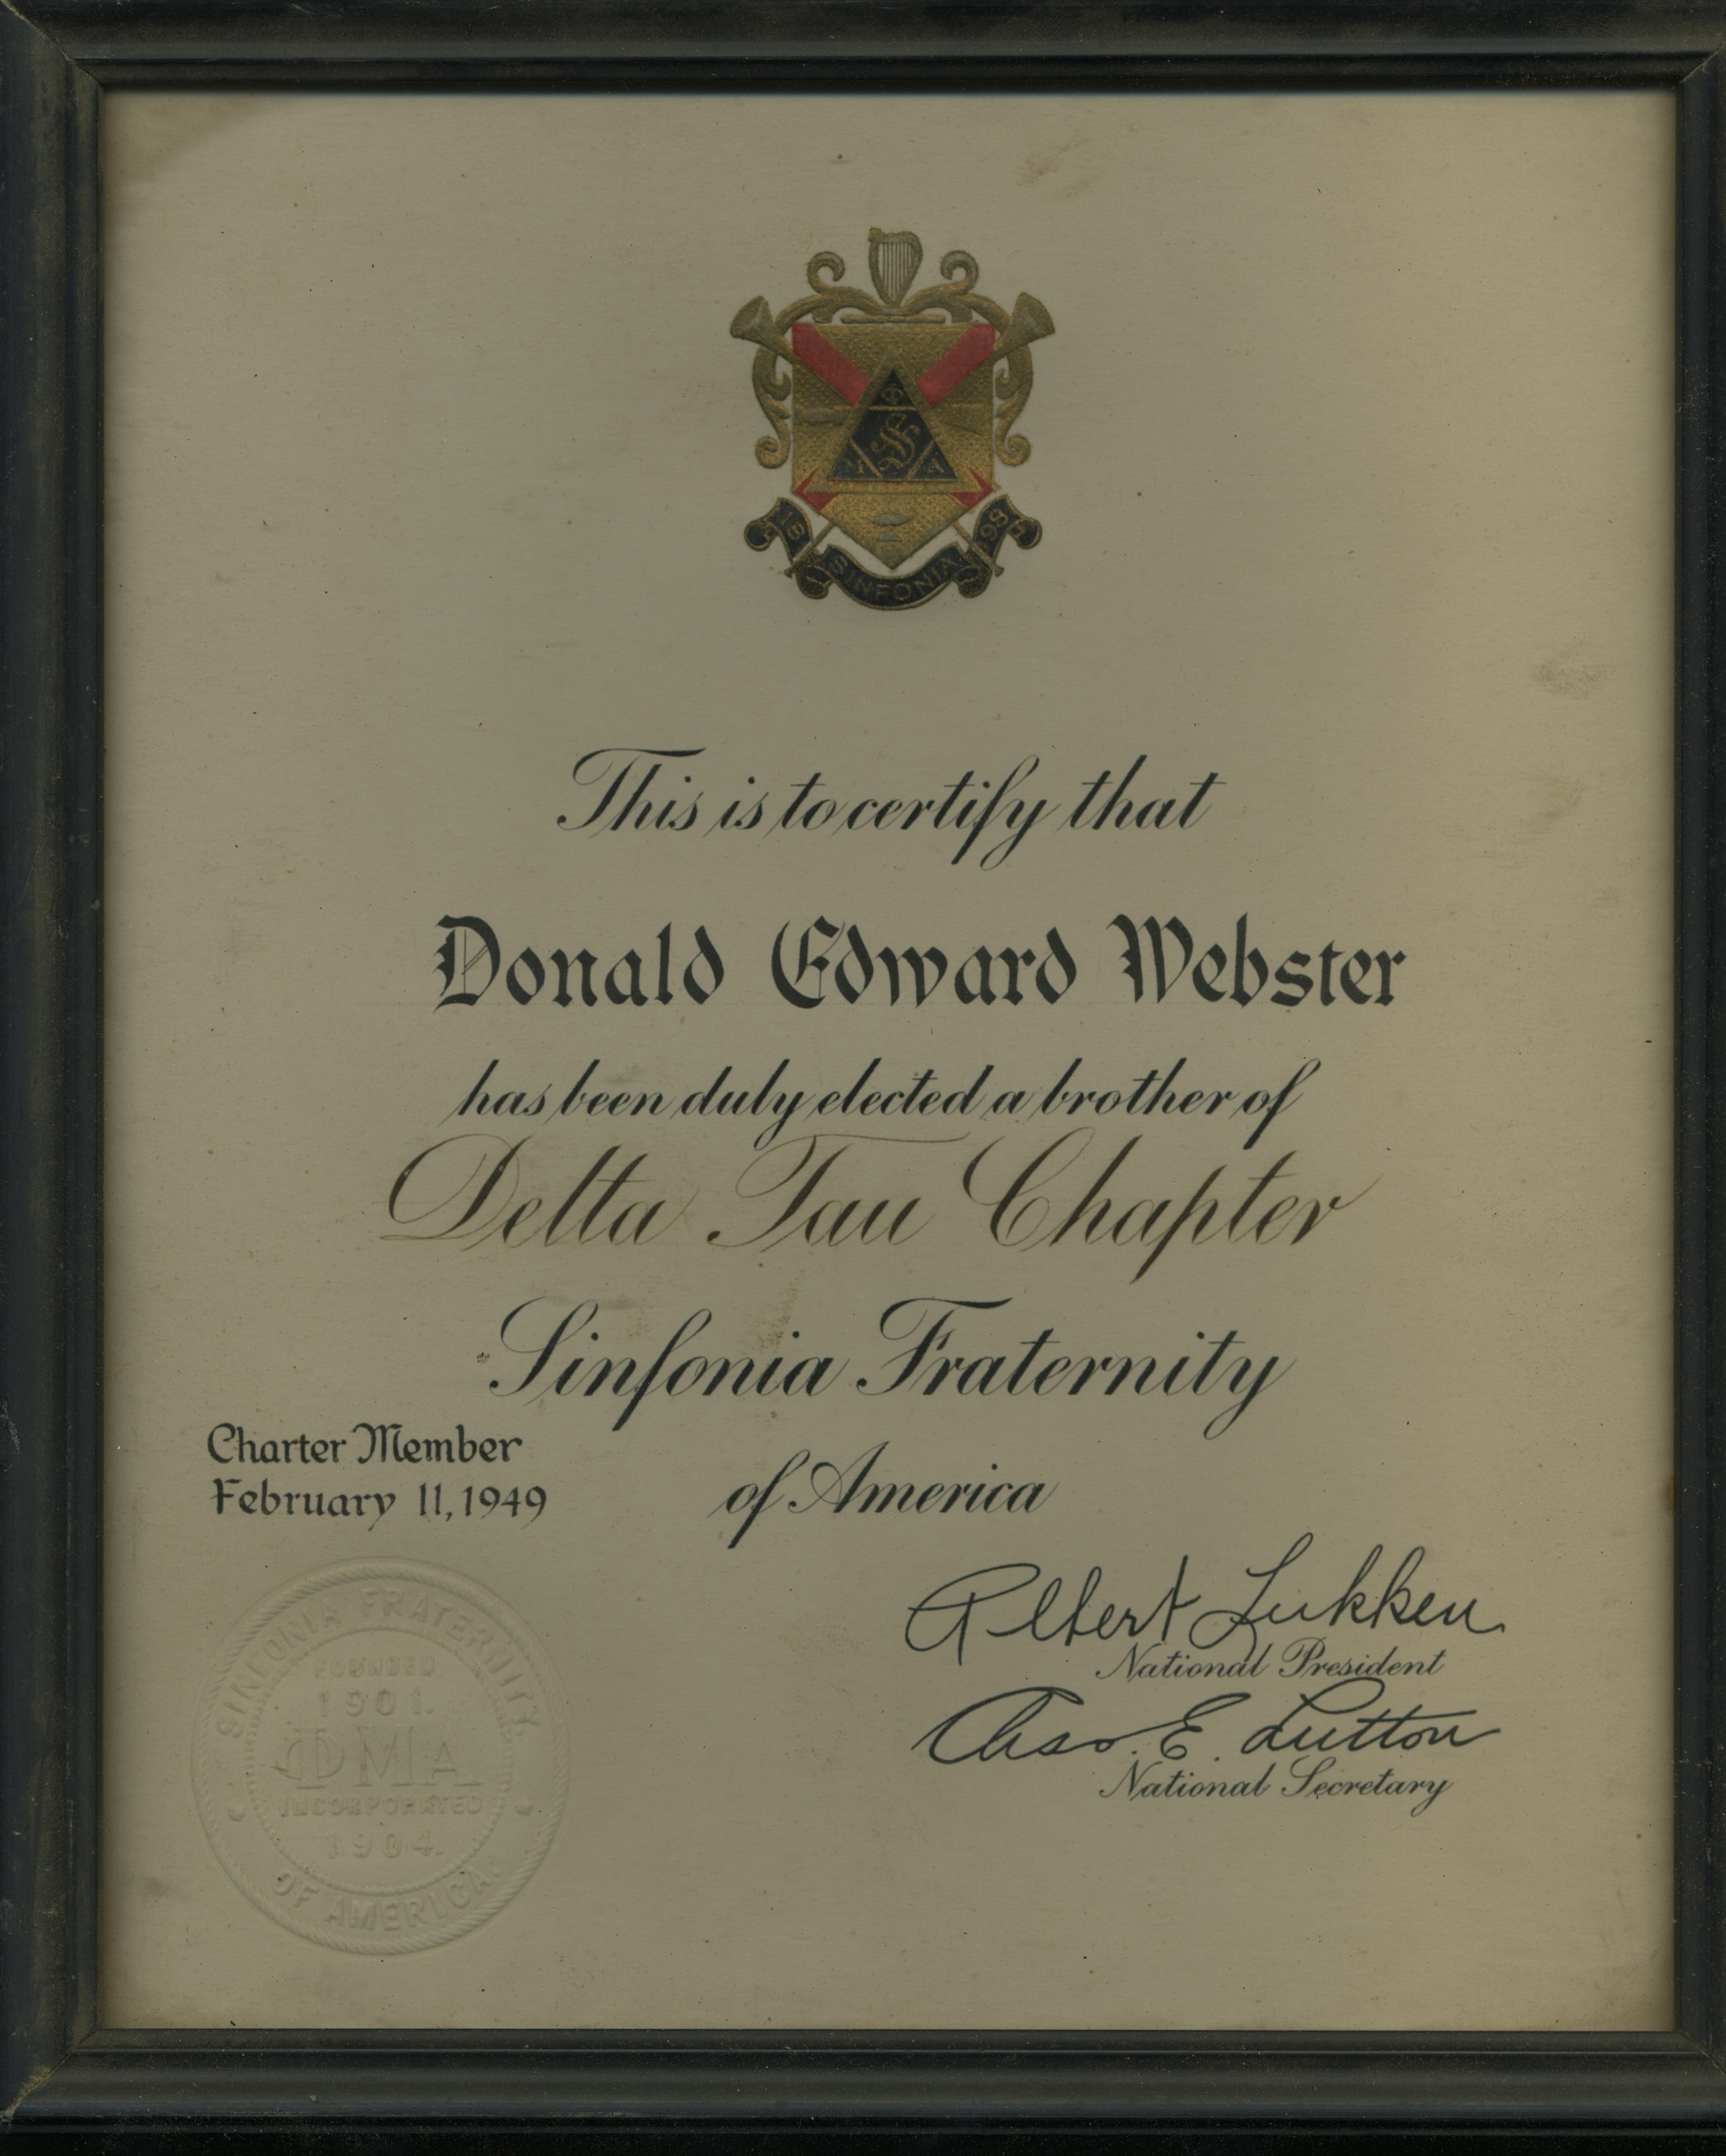 Φ
S
M A
18 98
SINFONIA
This is to certify that
Donald Edward Webster
has been duly elected a brother of
Delta Tau Chapter
Sinfonia Fraternity
of America
Charter Member
February 11, 1949
Albert Lukken
National President
Chas. E. Lutton
National Secretary
SINFONIA FRATERNITY
FOUNDED
1901.
ΦMA
INCORPORATED
1904.
OF AMERICA.